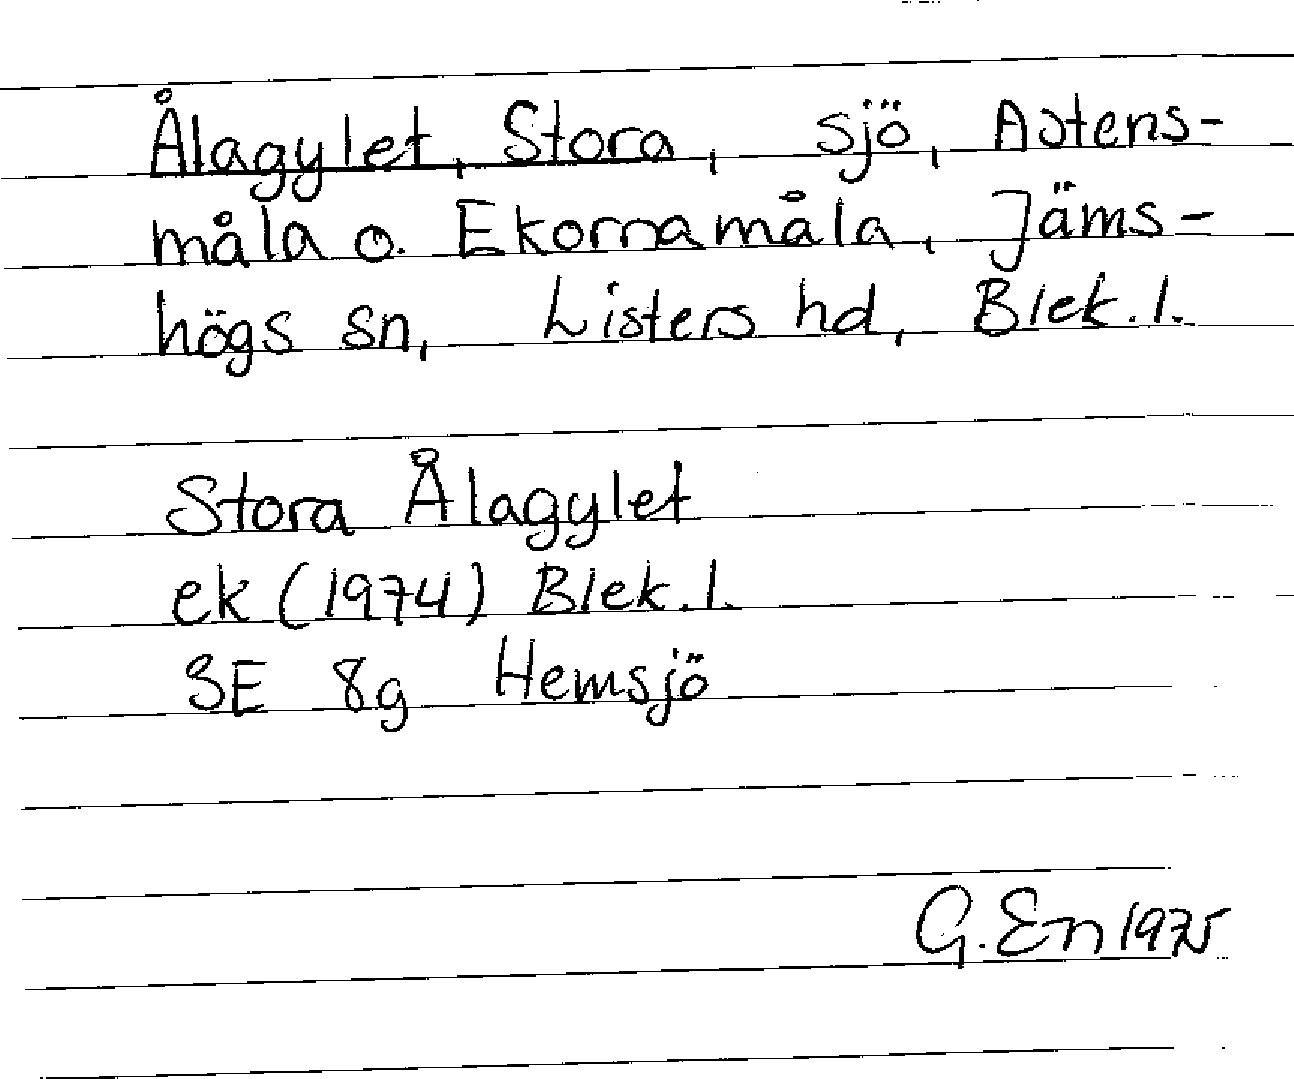 Ålagylet, Stora, sjö, Astens-
måla o. Ekornamåla, Jäms-
högs sn, Listers hd, Blek. l.
Stora Ålagylet
ek (1974) Blek. l.
3E 8g Hemsjö
G. En 1975